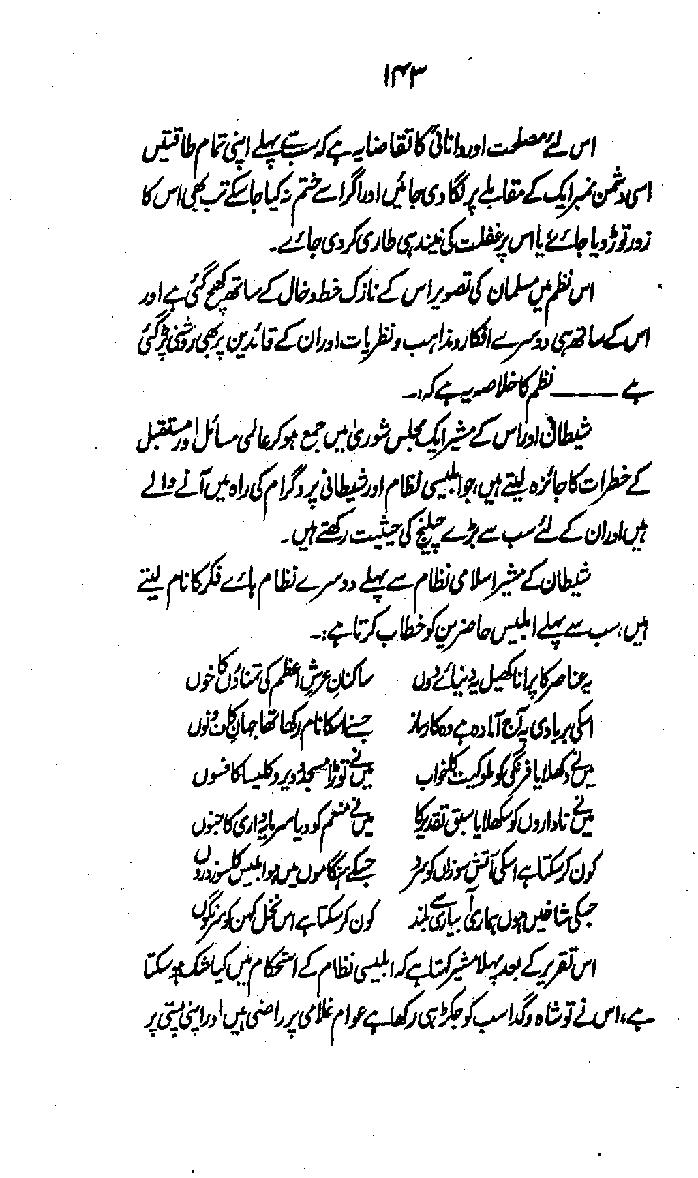 ۱۴۳
اس لئے مصلحت اور دانائی کا تقاضا یہ ہے کہ سب سے پہلے اپنی تمام طاقتیں
اسی دشمن نمبر ایک کے مقابلے پر لگا دی جائیں اور اگر اسے ختم نہ کیا جاسکے تب بھی اس کا
زور توڑ دیا جائے یا اس پر غفلت کی نیند ہی طاری کر دی جائے۔
اس نظم میں مسلمان کی تصویر اس کے نازک خط و خال کے ساتھ کھنچ گئی ہے اور
اس کے ساتھ ہی دوسرے افکار و مذاہب و نظریات اور ان کے قائدین پر بھی روشنی پڑ گئی
ہے ——— نظم کا خلاصہ یہ ہے کہ:۔
شیطان اور اس کے مشیر ایک مجلس شوریٰ میں جمع ہو کر عالمی مسائل اور مستقبل
کے خطرات کا جائزہ لیتے ہیں، جو ابلیسی نظام اور شیطانی پروگرام کی راہ میں آنے والے
ہیں اور ان کے لئے سب سے بڑے چیلنج کی حیثیت رکھتے ہیں۔
شیطان کے مشیر اسلامی نظام سے پہلے دوسرے نظام ہائے فکر کا نام لیتے
ہیں، سب سے پہلے ابلیس حاضرین کو خطاب کرتا ہے:۔
یہ عناصر کا پرانا کھیل یہ دنیائے دوں ساکنانِ عرشِ اعظم کی تمناؤں کا خوں
اسکی بربادی پہ آج آمادہ ہے وہ کارساز جسنے اسکا نام رکھا تھا جہانِ کاف و نوں
میں نے دکھلایا فرنگی کو ملوکیت کا خواب میں نے توڑا مسجد و دیر و کلیسا کا فسوں
میں نے ناداروں کو سکھلایا سبق تقدیر کا میں نے منعم کو دیا سرمایہ داری کا جنوں
کون کر سکتا ہے اسکی آتش سوزاں کو سرد جسکے ہنگاموں میں ہو ابلیس کا سوز دروں
جسکی شاخیں ہوں ہماری آبیاری سے بلند کون کر سکتا ہے اس نخل کہن کو سرنگوں
اس تقریر کے بعد پہلا مشیر کہتا ہے کہ ابلیسی نظام کے استحکام میں کیا شک ہو سکتا
ہے، اس نے تو شاہ و گدا سب کو جکڑ ہی رکھا ہے عوام غلامی پر راضی ہیں اور اپنی پستی پر